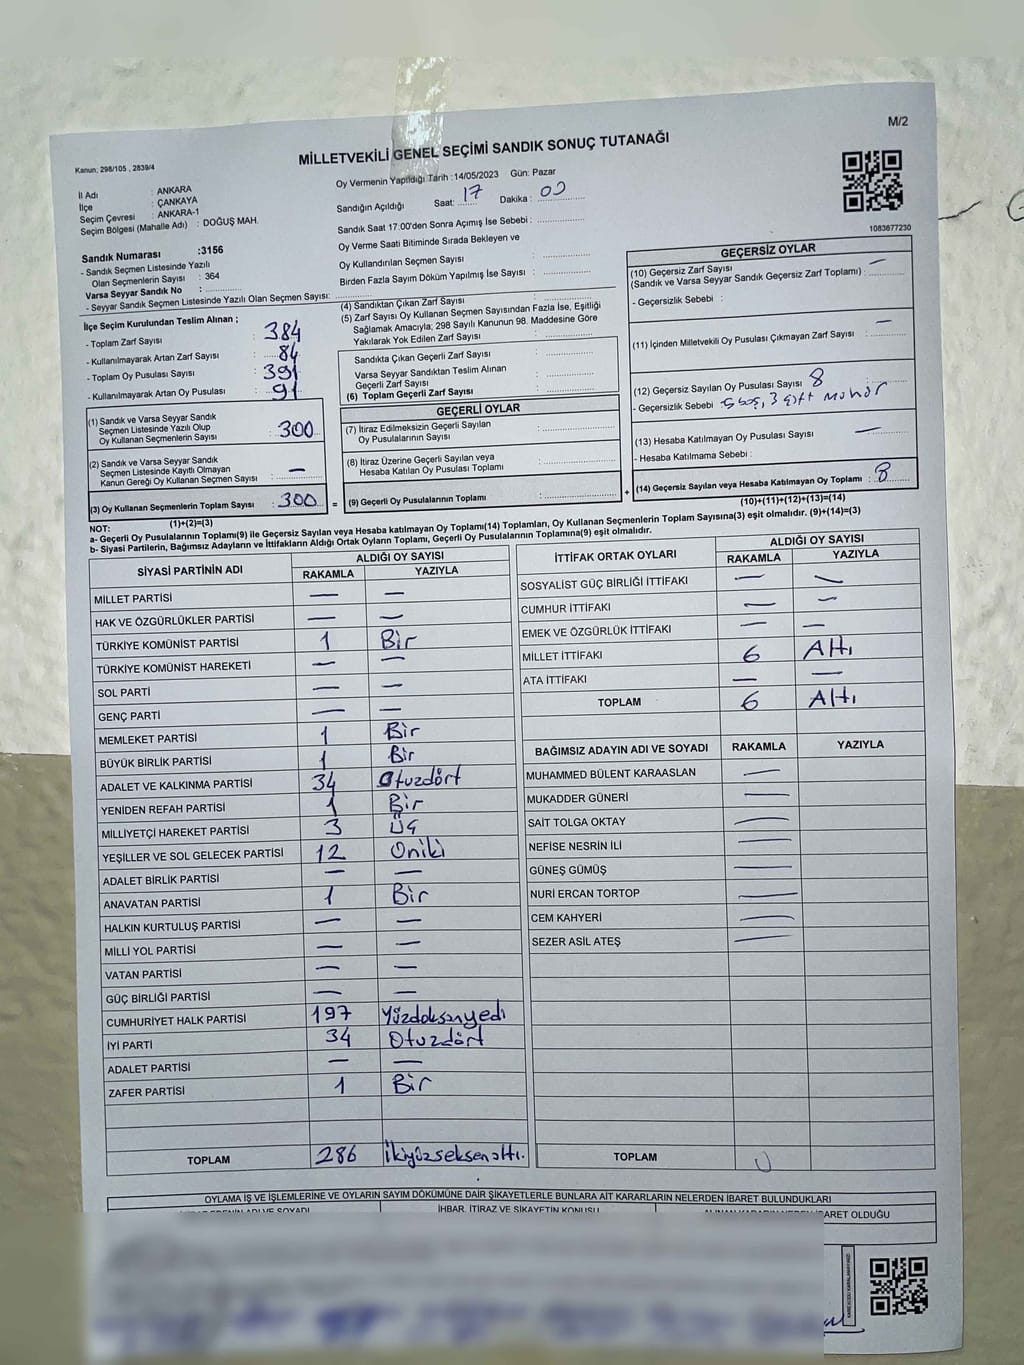 M/2
Kanun; 298/105 , 2839/4
MİLLETVEKİLİ GENEL SEÇİMİ SANDIK SONUÇ TUTANAĞI
İl Adı : ANKARA
İlçe : ÇANKAYA
Seçim Çevresi : ANKARA-1
Seçim Bölgesi (Mahalle Adı) : DOĞUŞ MAH.
Oy Vermenin Yapıldığı Tarih :14/05/2023 Gün: Pazar
Sandığın Açıldığı Saat: 17 Dakika : 00
Sandık Saat 17:00'den Sonra Açımış İse Sebebi :
Oy Verme Saati Bitiminde Sırada Bekleyen ve
Oy Kullandırılan Seçmen Sayısı :
Birden Fazla Sayım Döküm Yapılmış İse Sayısı :
1083677230
Sandık Numarası :3156
- Sandık Seçmen Listesinde Yazılı
Olan Seçmenlerin Sayısı : 364
Varsa Seyyar Sandık No :
- Seyyar Sandık Seçmen Listesinde Yazılı Olan Seçmen Sayısı:
İlçe Seçim Kurulundan Teslim Alınan ;
- Toplam Zarf Sayısı : 384
- Kullanılmayarak Artan Zarf Sayısı : 84
- Toplam Oy Pusulası Sayısı : 391
- Kullanılmayarak Artan Oy Pusulası : 91
(1) Sandık ve Varsa Seyyar Sandık
Seçmen Listesinde Yazılı Olup
Oy Kullanan Seçmenlerin Sayısı : 300
(2) Sandık ve Varsa Seyyar Sandık
Seçmen Listesinde Kayıtlı Olmayan
Kanun Gereği Oy Kullanan Seçmen Sayısı : —
(3) Oy Kullanan Seçmenlerin Toplam Sayısı : 300 =
(1)+(2)=(3)
(4) Sandıktan Çıkan Zarf Sayısı :
(5) Zarf Sayısı Oy Kullanan Seçmen Sayısından Fazla İse, Eşitliği
Sağlamak Amacıyla; 298 Sayılı Kanunun 98. Maddesine Göre
Yakılarak Yok Edilen Zarf Sayısı :
Sandıkta Çıkan Geçerli Zarf Sayısı :
Varsa Seyyar Sandıktan Teslim Alınan
Geçerli Zarf Sayısı :
(6) Toplam Geçerli Zarf Sayısı :
GEÇERLİ OYLAR
(7) İtiraz Edilmeksizin Geçerli Sayılan
Oy Pusulalarının Sayısı :
(8) İtiraz Üzerine Geçerli Sayılan veya
Hesaba Katılan Oy Pusulası Toplamı :
(9) Geçerli Oy Pusulalarının Toplamı : +
GEÇERSİZ OYLAR
(10) Geçersiz Zarf Sayısı
(Sandık ve Varsa Seyyar Sandık Geçersiz Zarf Toplamı) : —
- Geçersizlik Sebebi :
(11) İçinden Milletvekili Oy Pusulası Çıkmayan Zarf Sayısı : —
(12) Geçersiz Sayılan Oy Pusulası Sayısı : 8
- Geçersizlik Sebebi : 5 boş, 3 çift mühür
(13) Hesaba Katılmayan Oy Pusulası Sayısı : —
- Hesaba Katılmama Sebebi :
(14) Geçersiz Sayılan veya Hesaba Katılmayan Oy Toplamı : 8
(10)+(11)+(12)+(13)=(14)
NOT:
a- Geçerli Oy Pusulaların Toplamı(9) ile Geçersiz Sayılan veya Hesaba katılmayan Oy Toplamı(14) Toplamları, Oy Kullanan Seçmenlerin Toplam Sayısına(3) eşit olmalıdır. (9)+(14)=(3)
b- Siyasi Partilerin, Bağımsız Adayların ve İttifakların Aldığı Ortak Oyların Toplamı, Geçerli Oy Pusulalarının Toplamına(9) eşit olmalıdır.
SİYASİ PARTİNİN ADI ALDIĞI OY SAYISI
RAKAMLA YAZIYLA
MİLLET PARTİSİ — —
HAK VE ÖZGÜRLÜKLER PARTİSİ — —
TÜRKİYE KOMÜNİST PARTİSİ 1 Bir
TÜRKİYE KOMÜNİST HAREKETİ — —
SOL PARTİ — —
GENÇ PARTİ — —
MEMLEKET PARTİSİ 1 Bir
BÜYÜK BİRLİK PARTİSİ 1 Bir
ADALET VE KALKINMA PARTİSİ 34 Otuzdört
YENİDEN REFAH PARTİSİ 1 Bir
MİLLİYETÇİ HAREKET PARTİSİ 3 Üç
YEŞİLLER VE SOL GELECEK PARTİSİ 12 Oniki
ADALET BİRLİK PARTİSİ — —
ANAVATAN PARTİSİ 1 Bir
HALKIN KURTULUŞ PARTİSİ — —
MİLLİ YOL PARTİSİ — —
VATAN PARTİSİ — —
GÜÇ BİRLİĞİ PARTİSİ — —
CUMHURİYET HALK PARTİSİ 197 Yüzdoksanyedi
İYİ PARTİ 34 Otuzdört
ADALET PARTİSİ — —
ZAFER PARTİSİ 1 Bir
TOPLAM 286 İkiyüzseksenaltı.
İTTİFAK ORTAK OYLARI ALDIĞI OY SAYISI
RAKAMLA YAZIYLA
SOSYALİST GÜÇ BİRLİĞİ İTTİFAKI — —
CUMHUR İTTİFAKI — —
EMEK VE ÖZGÜRLÜK İTTİFAKI — —
MİLLET İTTİFAKI 6 Altı
ATA İTTİFAKI — —
TOPLAM 6 Altı
BAĞIMSIZ ADAYIN ADI VE SOYADI RAKAMLA YAZIYLA
MUHAMMED BÜLENT KARAASLAN —
MUKADDER GÜNERİ —
SAİT TOLGA OKTAY —
NEFİSE NESRİN İLİ —
GÜNEŞ GÜMÜŞ —
NURİ ERCAN TORTOP —
CEM KAHYERİ —
SEZER ASİL ATEŞ —
TOPLAM
OYLAMA İŞ VE İŞLEMLERİNE VE OYLARIN SAYIM DÖKÜMÜNE DAİR ŞİKAYETLERLE BUNLARA AİT KARARLARIN NELERDEN İBARET BULUNDUKLARI
İHBAR, İTİRAZ VE ŞİKAYETİN KONUSU
OLDUĞU